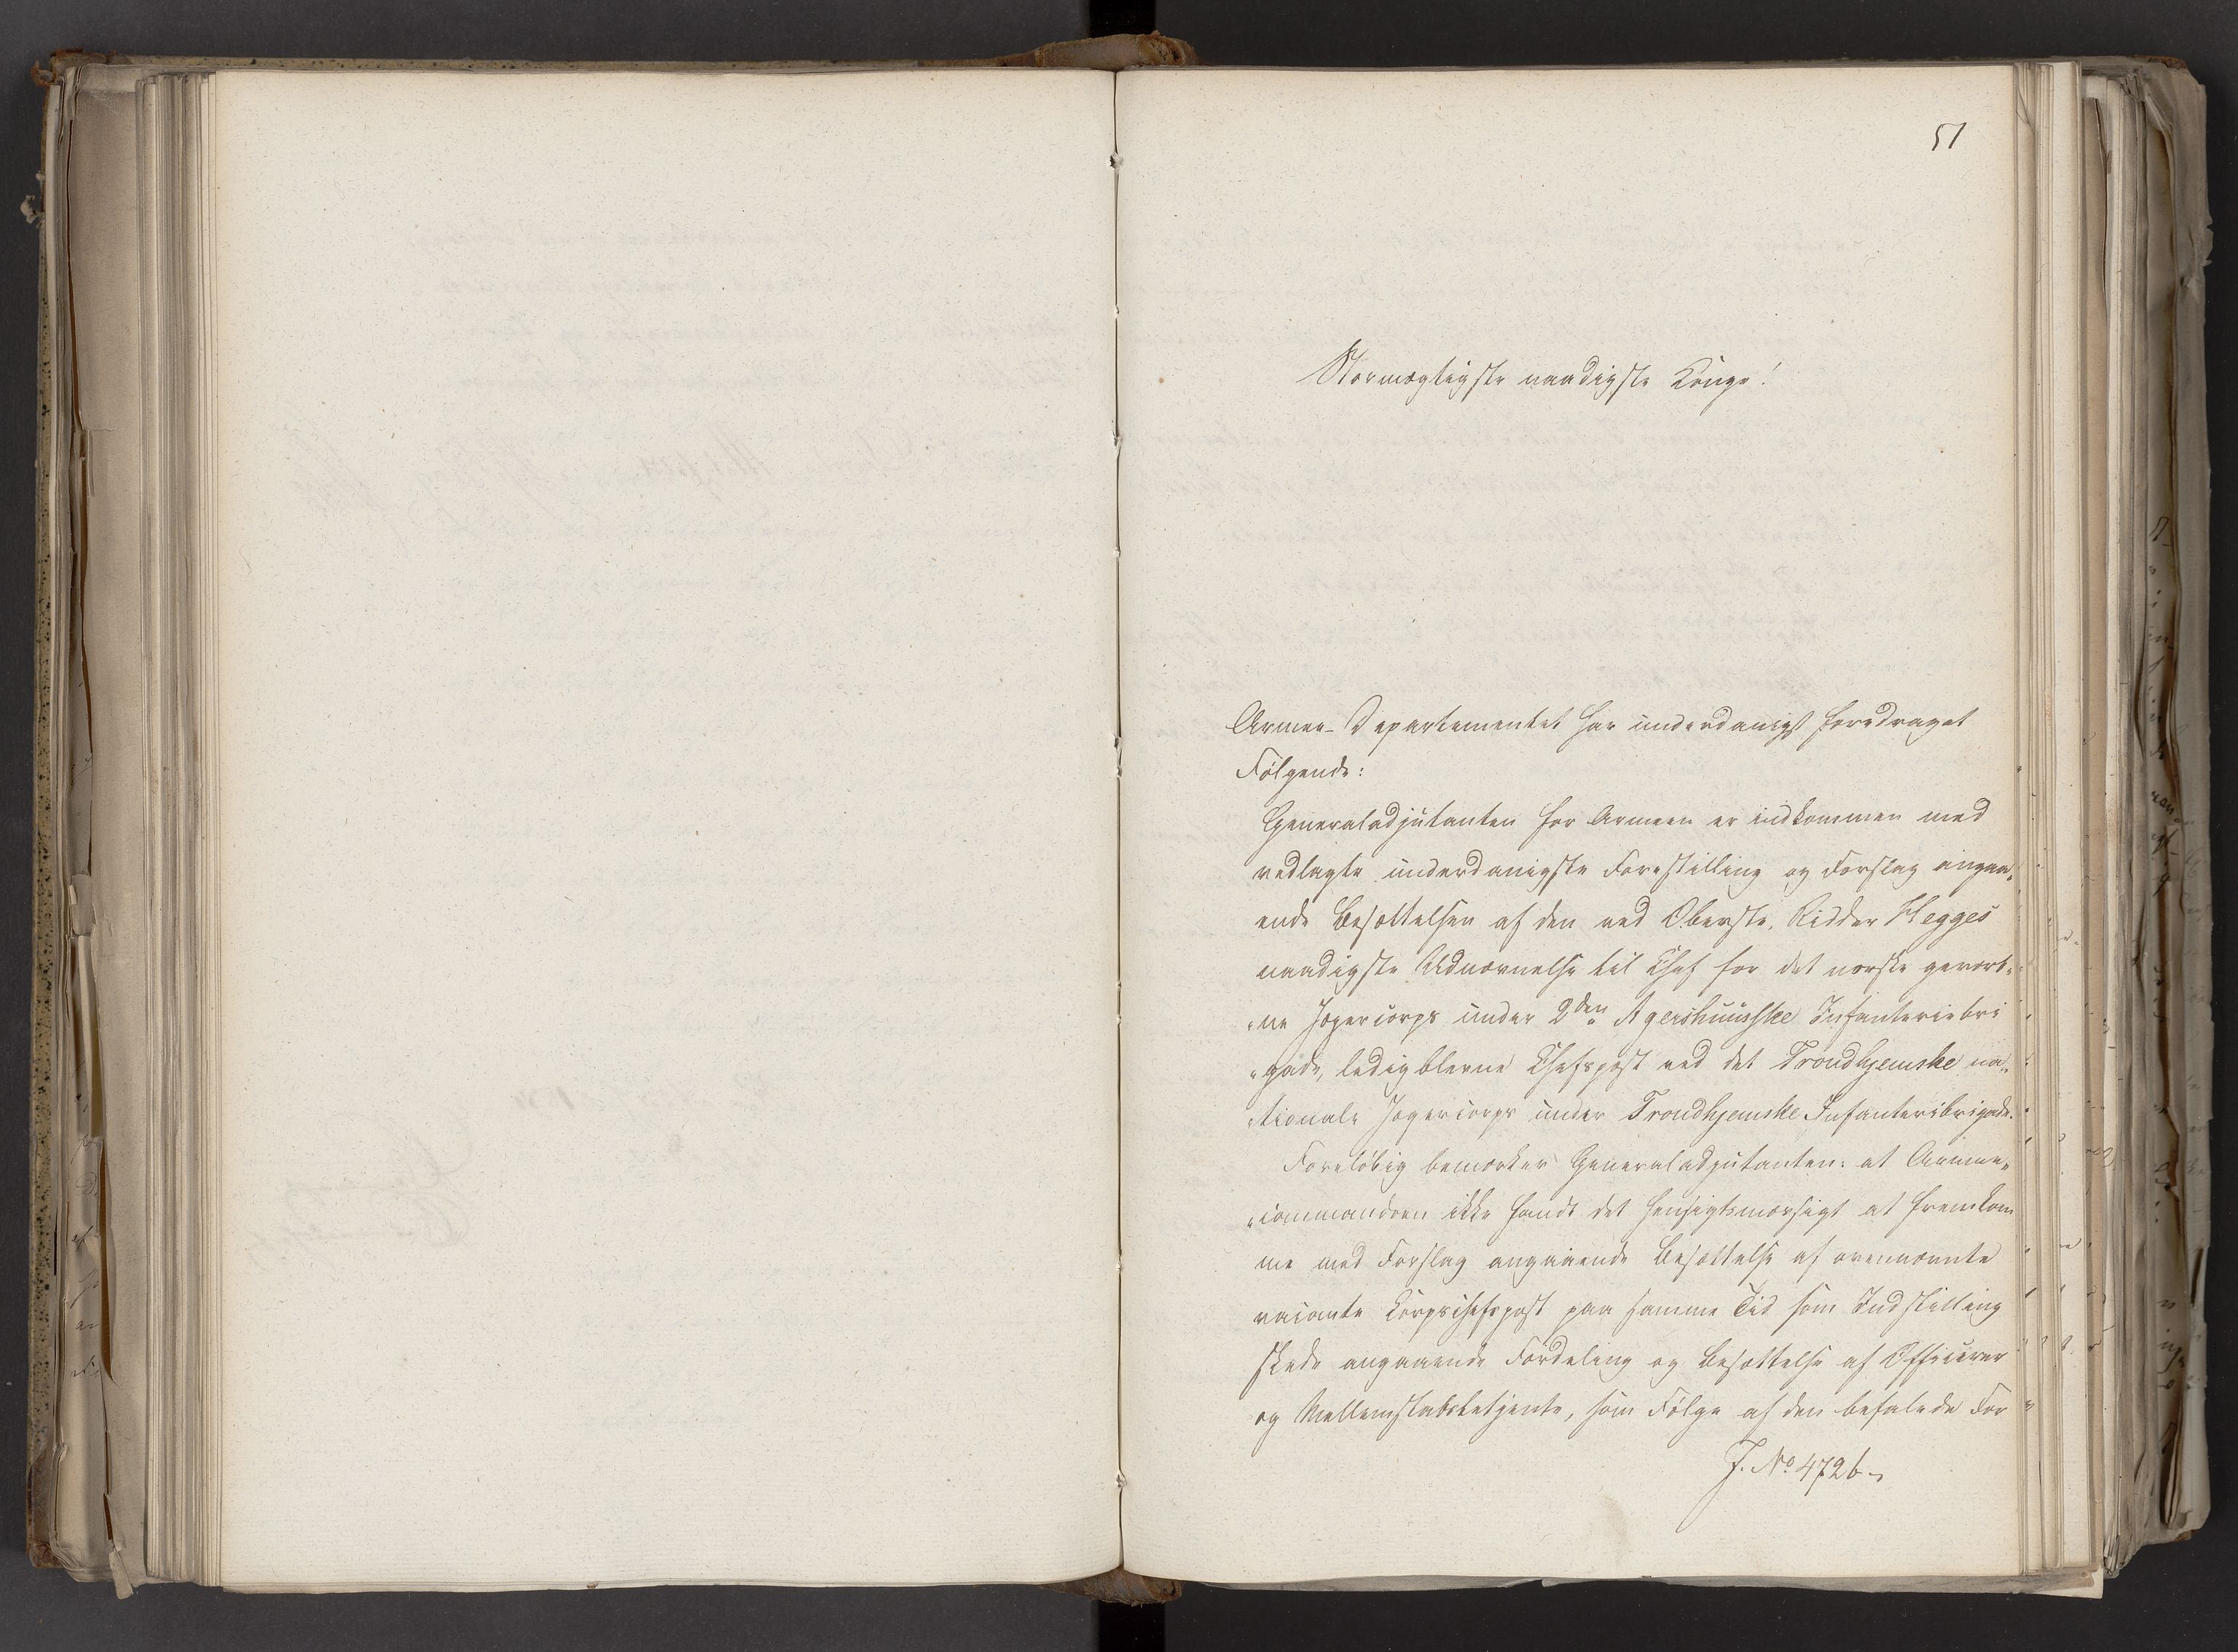 51
Stormægtigste naadigste Konge!
Armee-Departementet har underdanigst foredraget
Følgende:
Generaladjutanten for Armeen er indkommen med
vedlagte underdanigste Forestilling og Forslag angaa„
ende Besættelsen af den ved Oberste, Ridder Hegges
naadigste Udnævnelse til Chef for det norske gevorb„
„ne Jægercorps under 2den Agershuusske Infanteriebri
„gade, ledigblevne Chefspost ved det Trondhjemske na„
„tionale Jægercorps under Trondhjemske Infanteribrigade.
Foreløbig bemærker Generaladjutanten: at Armee„
„commandoen ikke fandt det hensigtsmæssigt at fremkom
me med Forslag angaaende Besættelse af ovennævnte
vacante Corpschefspost paa samme Tid som Indstilling
skede angaaende Fordeling og Besættelse af Officerer
og Mellemstabsbetjente, som Følge af den befalede For
J. No 4726